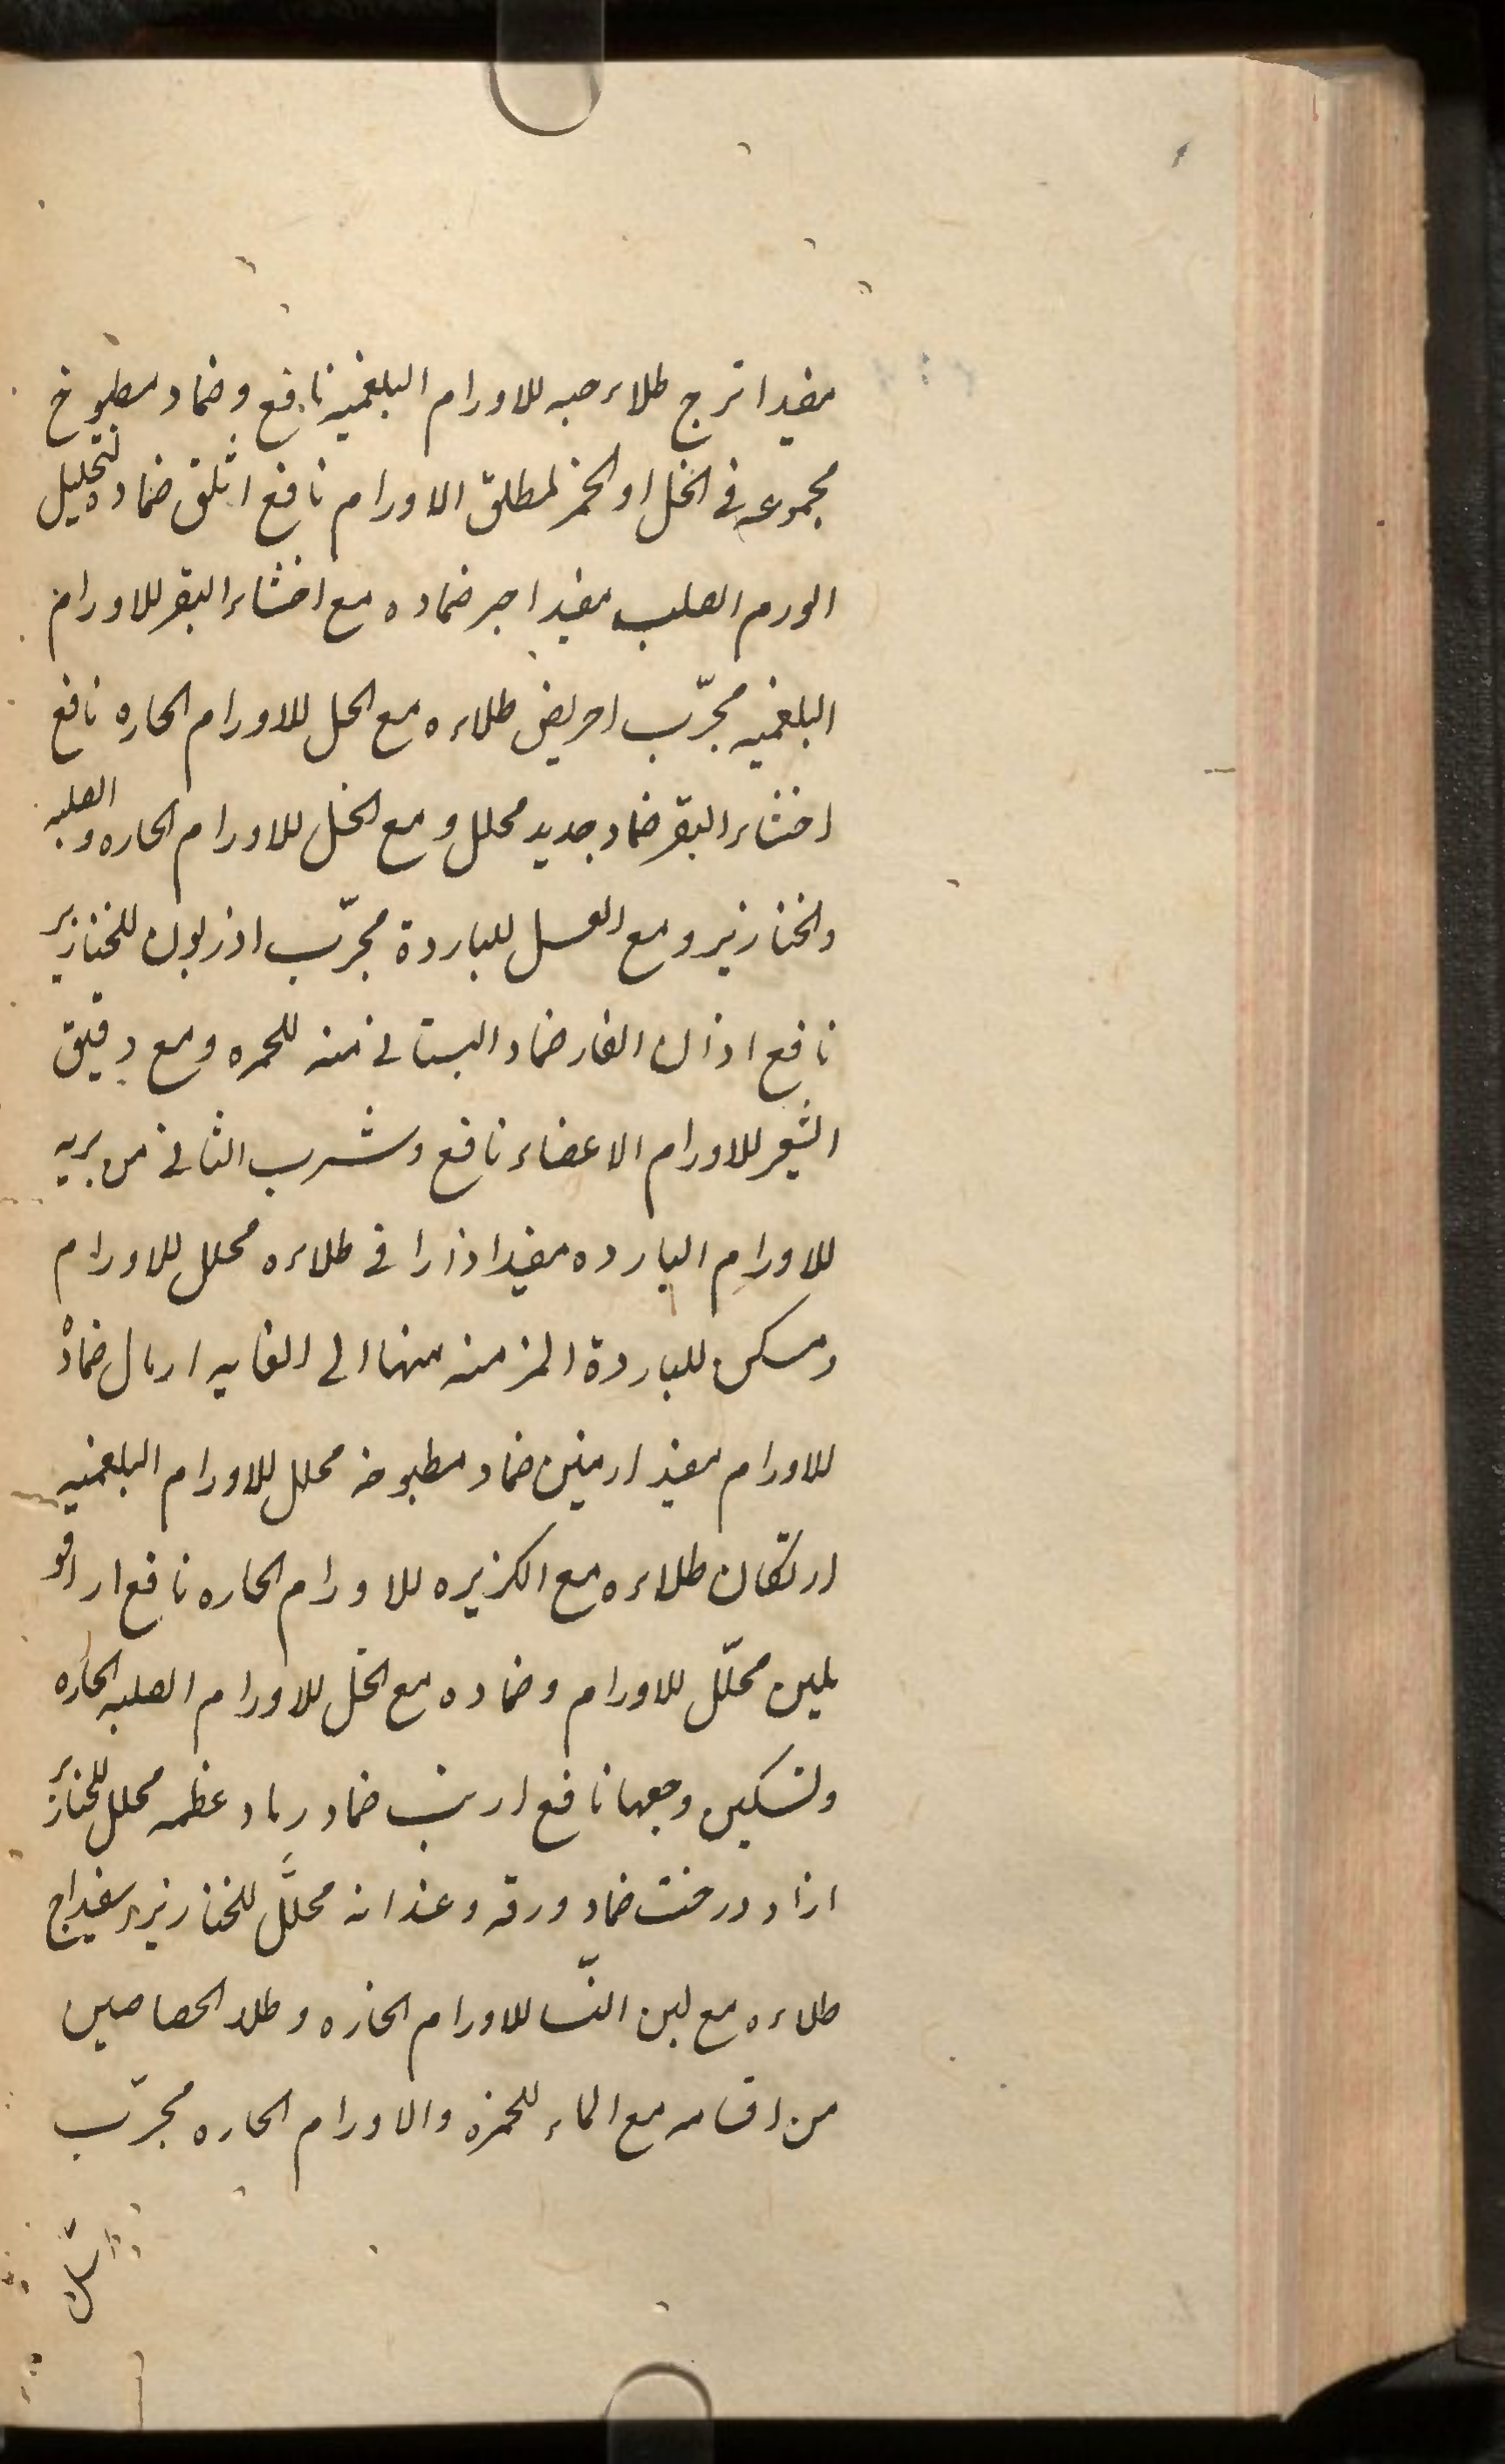 مفید اترج طلاء حبه للاورام البلغمیه نافع و ضماد مطبوخ
مجموعه فی الخل او الخمر لمطلق الاورام نافع اثلق ضماده لتحلیل
الورم الصلب مفید اجر ضماده مع اخثاء البقر للاورام
البلغمیه مجرّب احریض طلاءه مع الخل للاورام الحاره نافع
اخثاء البقر ضماد جدید محلل و مع الخل للاورام الحاره و الصلبه
والخنازیر و مع العسل للباردة مجرّب اذربون للخنازیر
نافع اذان الفار ضماد البستانی منه للحمره و مع دقیق
الشعیر للاورام الاعضاء نافع و شرب الثانی من بریه
للاورام البارده مفید اذاراقی طلاءه محلل للاورام
ومسکن للباردة المزمنه منها الی الغایه ارمال ضمادٌ
للاورام مفید ارمنین ضماد مطبوخه محلل للاورام البلغمیه
ارتکان طلاءه مع الکزبره للاورام الحاره نافع اراقو
ملین محلّل للاورام و ضماده مع الخل للاورام الصلبه الحاره
ولتسکین وجعها نافع ارنب ضماد رماد عظمه محلل للخنازیر
ازاد درخت ضماد ورقه و عندانه محلّل للخنازیر اسفیداج
طلاءه مع لبن النّسا للاورام الحاره و طلاء الحصاصین
من اقسامه مع الماء للحمره والاورام الحاره مجرّب